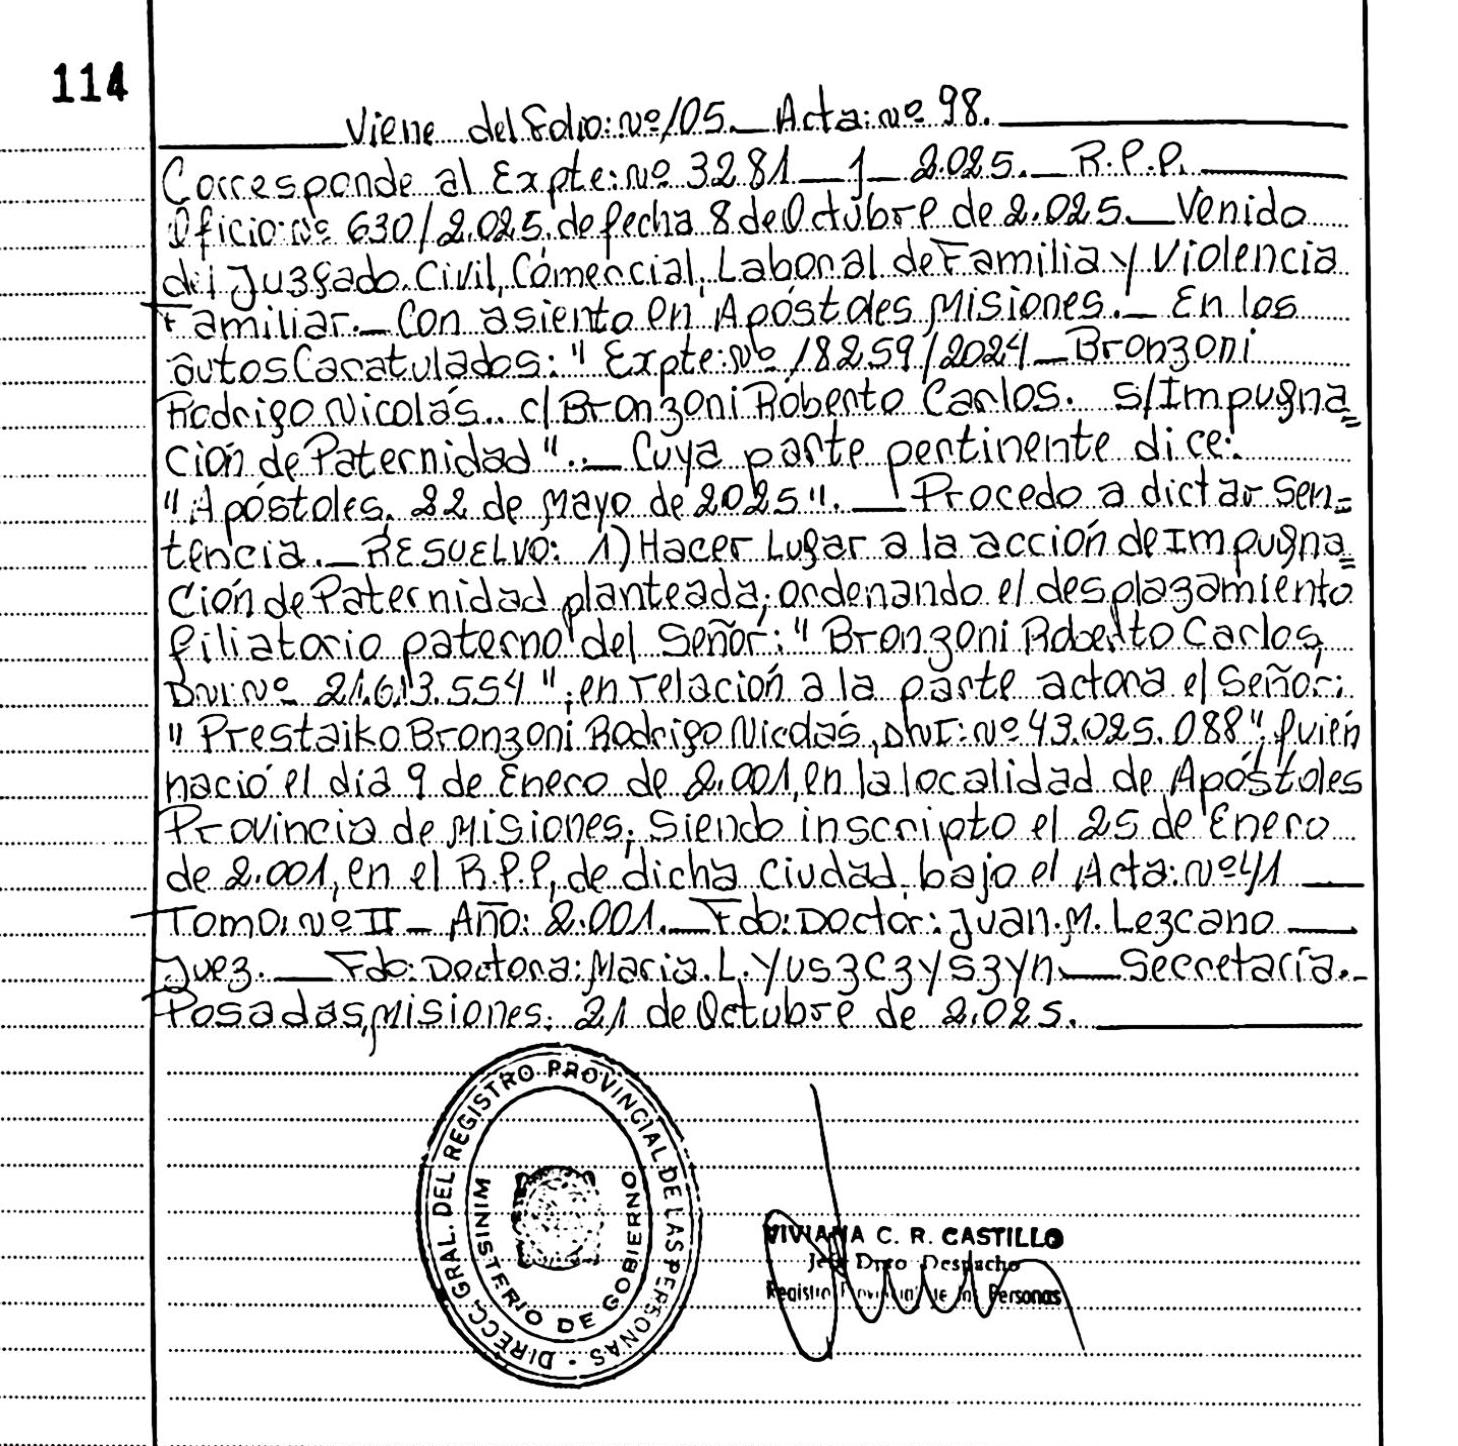 114
Viene del Folio: Nº 105._ Acta: Nº 98.
Corresponde al Expte: Nº 3281_J_2.025._ R.P.P.
Oficio: Nº 630/2.025. de fecha 8 de Octubre de 2.025._ Venido
del Juzgado. Civil, Comercial, Laboral de Familia y Violencia
Familiar._ Con asiento en Apóstoles Misiones._ En los
autos Caratulados: " Expte: Nº 18259/2024_ Bronzoni
Rodrigo Nicolás.. c/ Bronzoni Roberto Carlos. S/Impugna=
ción de Paternidad"._ Cuya parte pertinente dice:
"Apóstoles, 22 de Mayo de 2025"._ Procedo a dictar Sen=
tencia._ RESUELVO: 1) Hacer Lugar a la acción de Impugna=
ción de Paternidad planteada; ordenando el desplazamiento
filiatorio paterno del Señor: " Bronzoni Roberto Carlos,
DNI: Nº 21.613.554"; en relación a la parte actora el Señor:
" Prestaiko Bronzoni Rodrigo Nicolás, DNI: Nº 43.025.088", quién
nació el día 9 de Enero de 2.001, en la localidad de Apóstoles
Provincia de Misiones; Siendo inscripto el 25 de Enero
de 2.001, en el R.P.P, de dicha ciudad, bajo el Acta: Nº 41
Tomo: Nº II _ Año: 2.001._ Fdo: Doctor: Juan. M. Lezcano
Juez._ Fdo: Doctora: Maria. L. Yuszczyszyn_ Secretaría._
Posadas, Misiones; 21 de Octubre de 2.025.
DIRECC. GRAL. DEL REGISTRO PROVINCIAL DE LAS PERSONAS
MINISTERIO DE GOBIERNO
VIVIANA C. R. CASTILLO
Jefe Dpto Despacho
Registro Provincial de las Personas